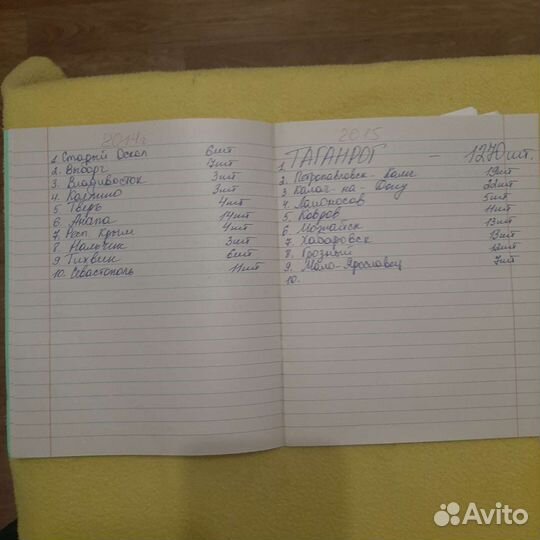 2014г
1. Старый Оскол 6шт
2. Выборг 7шт
3. Владивосток 3шт
4. Колпино 3шт
5. Тверь 4шт
6. Анапа 14шт
7. Респ. Крым 4шт
8. Нальчик 3шт
9. Тихвин 6шт
10. Севастополь 11шт
2015
1. ТАГАНРОГ - 1270шт.
2. Петропавловск- Камч 19шт
3. Калач-на-Дону 22шт
4. Ломоносов 5шт
5. Ковров 11шт
6. Можайск 13шт
7. Хабаровск 13шт
8. Грозный 12шт
9. Мало-Ярославец 7шт
10.
Avito